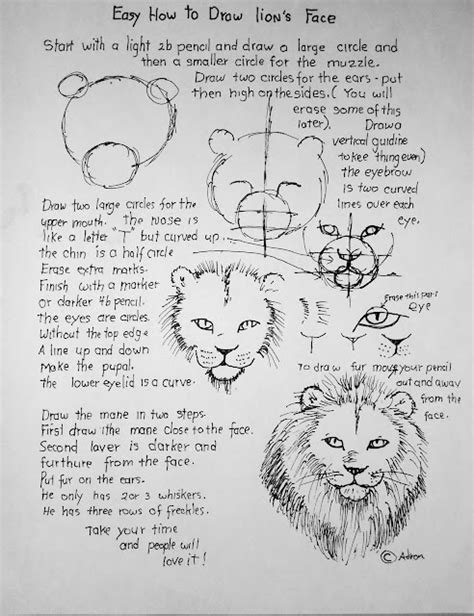 Easy How to Draw lion's Face
Start with a light 2b pencil and draw a large circle and
then a smaller circle for the muzzle.
Draw two circles for the ears - put
then high on the sides. (You will
erase some of this
later). Draw a
vertical guidine
to kee thing even)
the eyebrow
is two curved
lines over each
eye.
Draw two large circles for the
upper mouth. The nose is
like a letter "T" but curved up.
the chin is a half circle
Erase extra marks.
Finish with a marker
or darker 4b pencil.
The eyes are circles.
Without the top edge
A line up and down
make the pupal.
the lower eyelid is a curve.
Erase this part
eye
To draw fur move your pencil
out and away
from the
face.
Draw the mane in two steps.
First draw the mane close to the face.
Second laver is darker and
furthure from the face.
Put fur on the ears.
He only has 2 or 3 whiskers.
He has three rows of freckles.
Take your time
and people will
love it!
© Adron